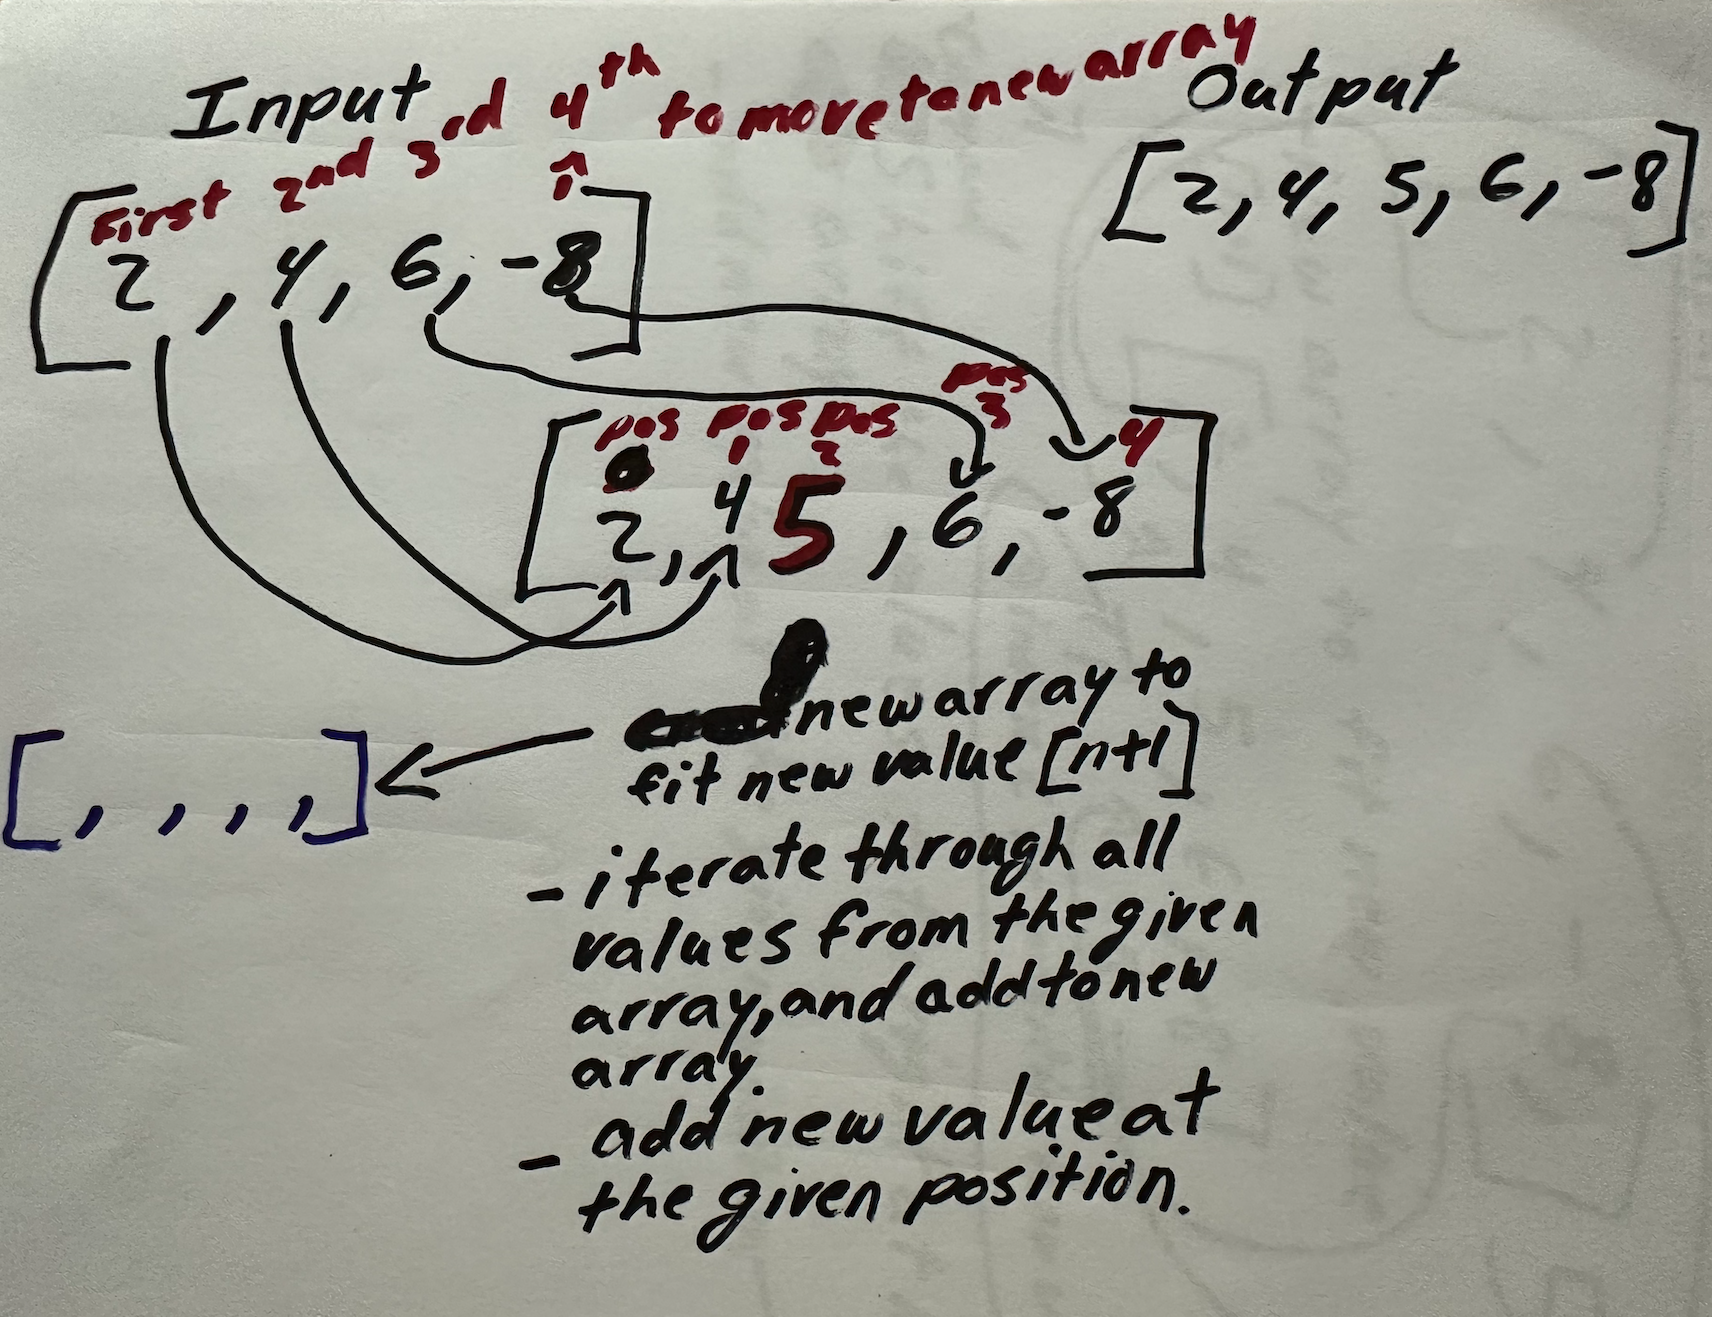 Input
First 2nd 3rd 4th to move to new array
[2, 4, 6, -8]
Output
[2, 4, 5, 6, -8]
pos pos pos pos
0 1 2 3 4
[2, 4 5, 6, -8]
new array to
fit new value [n+1]
[, , , ,]
- iterate through all
values from the given
array, and add to new
array.
- add new value at
the given position.